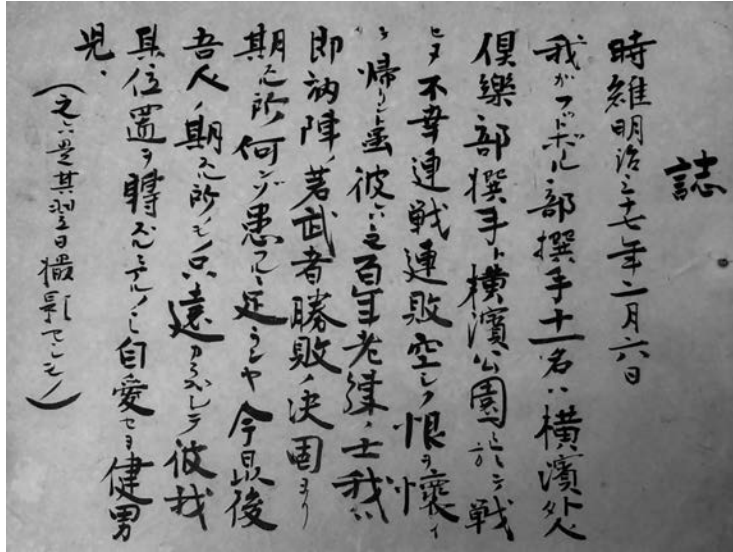 誌
時維明治三十七年二月六日
我がフートボール部撰手十一名ハ横濱外人
倶樂部撰手ト横濱公園ニ於テ戦
ヒタ不幸連戦連敗空シク恨ヲ懐イ
テ帰リシト雖彼ハ之百年老練ノ士我ハ
即初陣ノ若武者勝敗ノ決固ヨリ
期スル所何ンゾ患フルニ足ランヤ今最後
吾人ノ期スル所ノモノ只遠カラズシテ彼我
其位置ヲ轉ズルニアルノミ自愛セヨ健男
児、
(之ハ是其翌日撮影セシモノ)